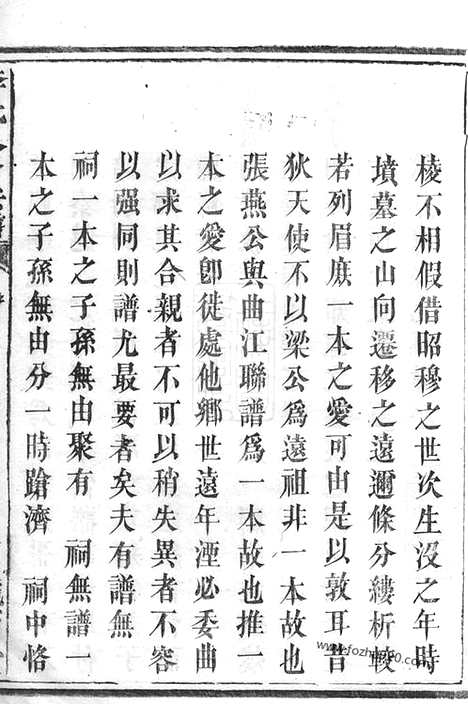 棱不相假借昭穆之世次生没之年時
墳墓之山向遷移之遠邇條分縷析較
若列眉庶一本之愛可由是以敦耳昔
狄天使不以梁公爲遠祖非一本故也
張燕公與曲江聯譜爲一本故也推一
本之愛卽徙處他鄉世遠年湮必委曲
以求其合親者不可以稍失異者不容
以强同則譜尤最要者矣夫有譜無
祠一本之子孫無由聚有 祠無譜一
本之子孫無由分一時蹌濟 祠中恪
www.fozhu920.com